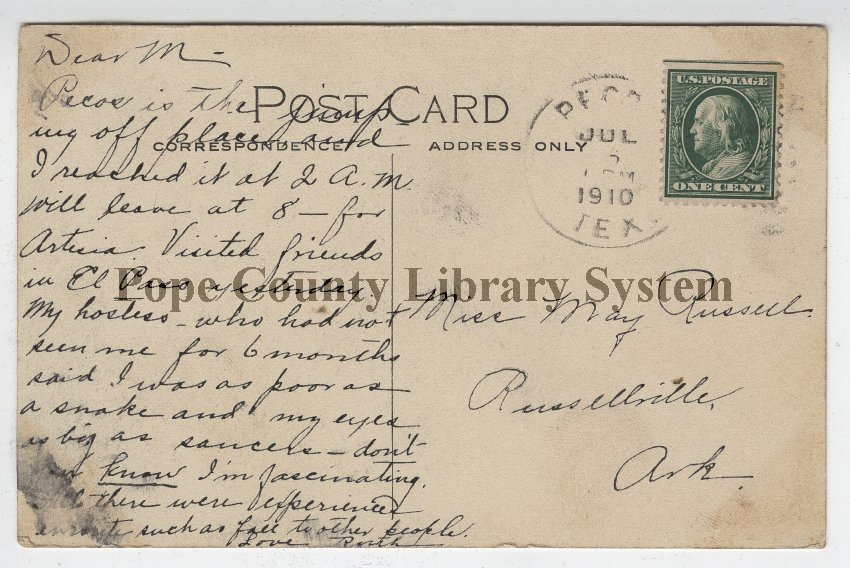 Dear M-
Pecos is the jump
ing off place and
I reached it at 2 A.M
will leave at 8 - for
Artesia. Visited friends
in El Paso yesterday.
My hostess - who had not
seen me for 6 months
said I was as poor as
a snake and my eyes
as big as saucers - don't
know I'm fascinating.
there were experiences
enroute such as fall to other people.
Love
POST CARD
CORRESPONDENCE
ADDRESS ONLY
PECO
JUL
1910
TEX.
U.S. POSTAGE
ONE CENT
Pope County Library System
Miss May Russell
Russellville,
Ark.